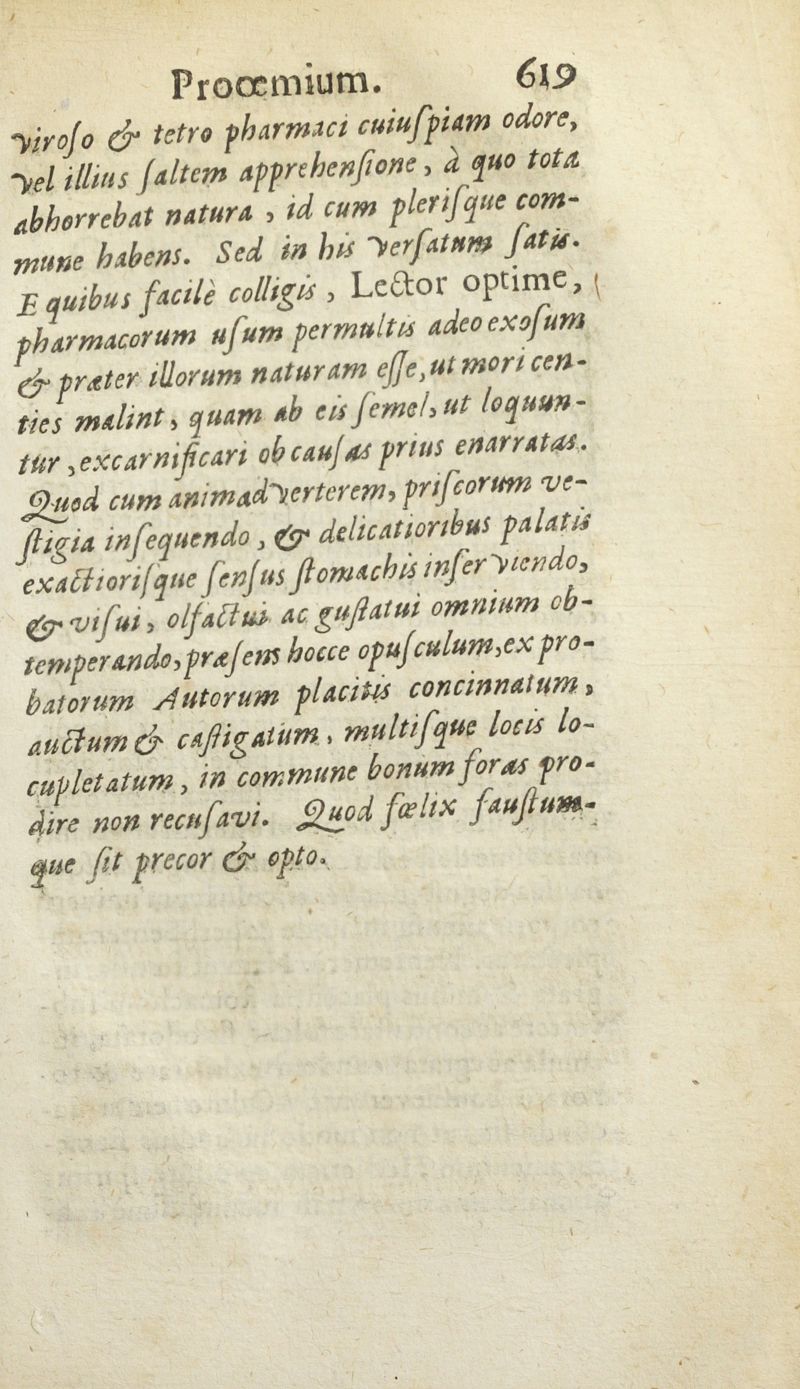 Proœmium. 619
viroſo & tetro pharmaci cuiuſpiam odore,
vel illius ſaltem apprehenſione, à quo tota
abhorrebat natura, id cum pleriſque com-
mune habens. Sed in his verſatum ſatis.
E quibus facilè colligis, Lector optime,
pharmacorum uſum permultis adeo exoſum
& præter illorum naturam eſſe, ut mori cen-
ties malint, quam ab eis ſemel, ut loquun-
tur, excarnificari ob cauſas prius enarratas.
Quod cum animadverterem, priſcorum ve-
ſtigia inſequendo, & delicatioribus palatis
exactioriſque ſenſus ſtomachis inſerviendo,
& viſui, olfactui ac guſtatui omnium ob-
temperando, præſens hocce opuſculum, ex pro-
batorum Autorum placitis concinnatum,
auctum & caſtigatum, multiſque locis lo-
cupletatum, in commune bonum foras pro-
dire non recuſavi. Quod fœlix fauſtum-
que ſit precor & opto.